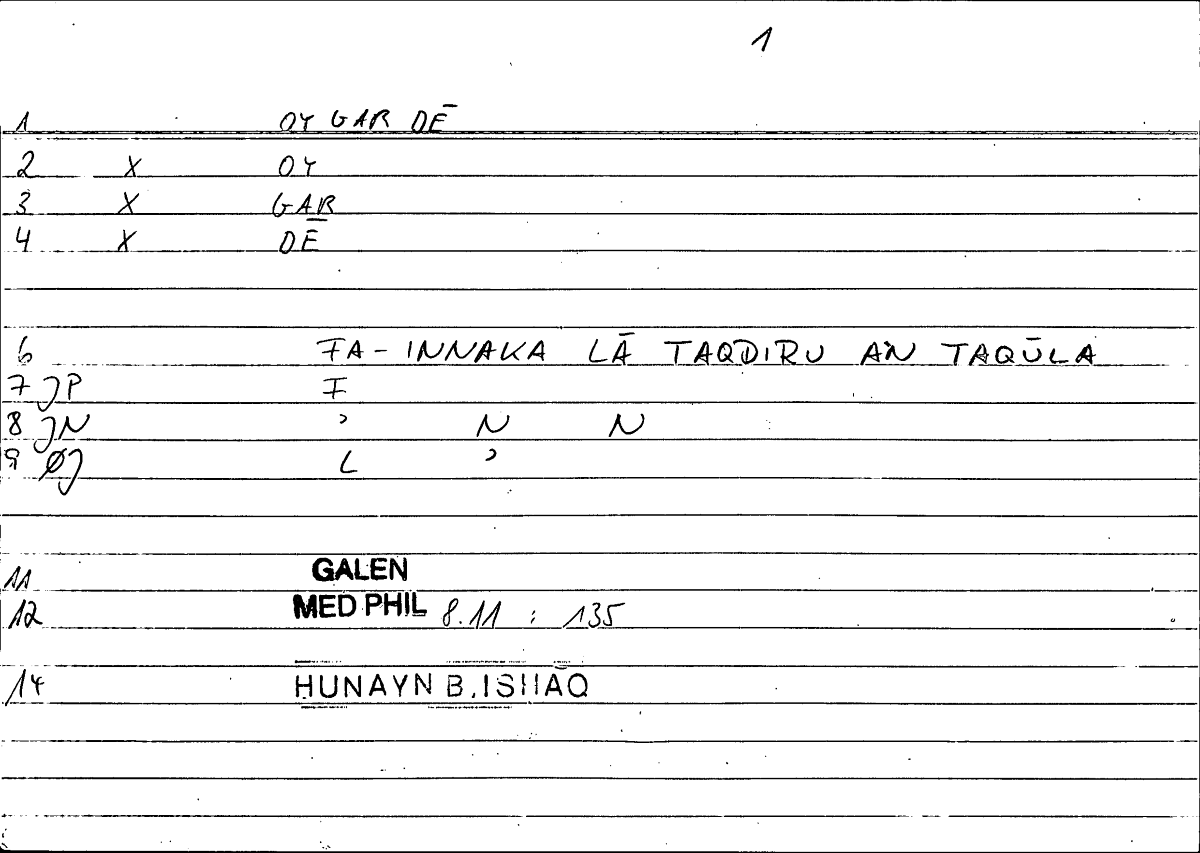 1
1 OY GAR DĒ
2 X OY
3 X GAR
4 X DĒ
6 FA-INNAKA LĀ TAQDIRU AN TAQŪLA
7 JP F
8 JN ʾ N N
9 ØJ L ʾ
11 GALEN
12 MED PHIL 8.11 : 135
14 HUNAYN B. ISHĀQ